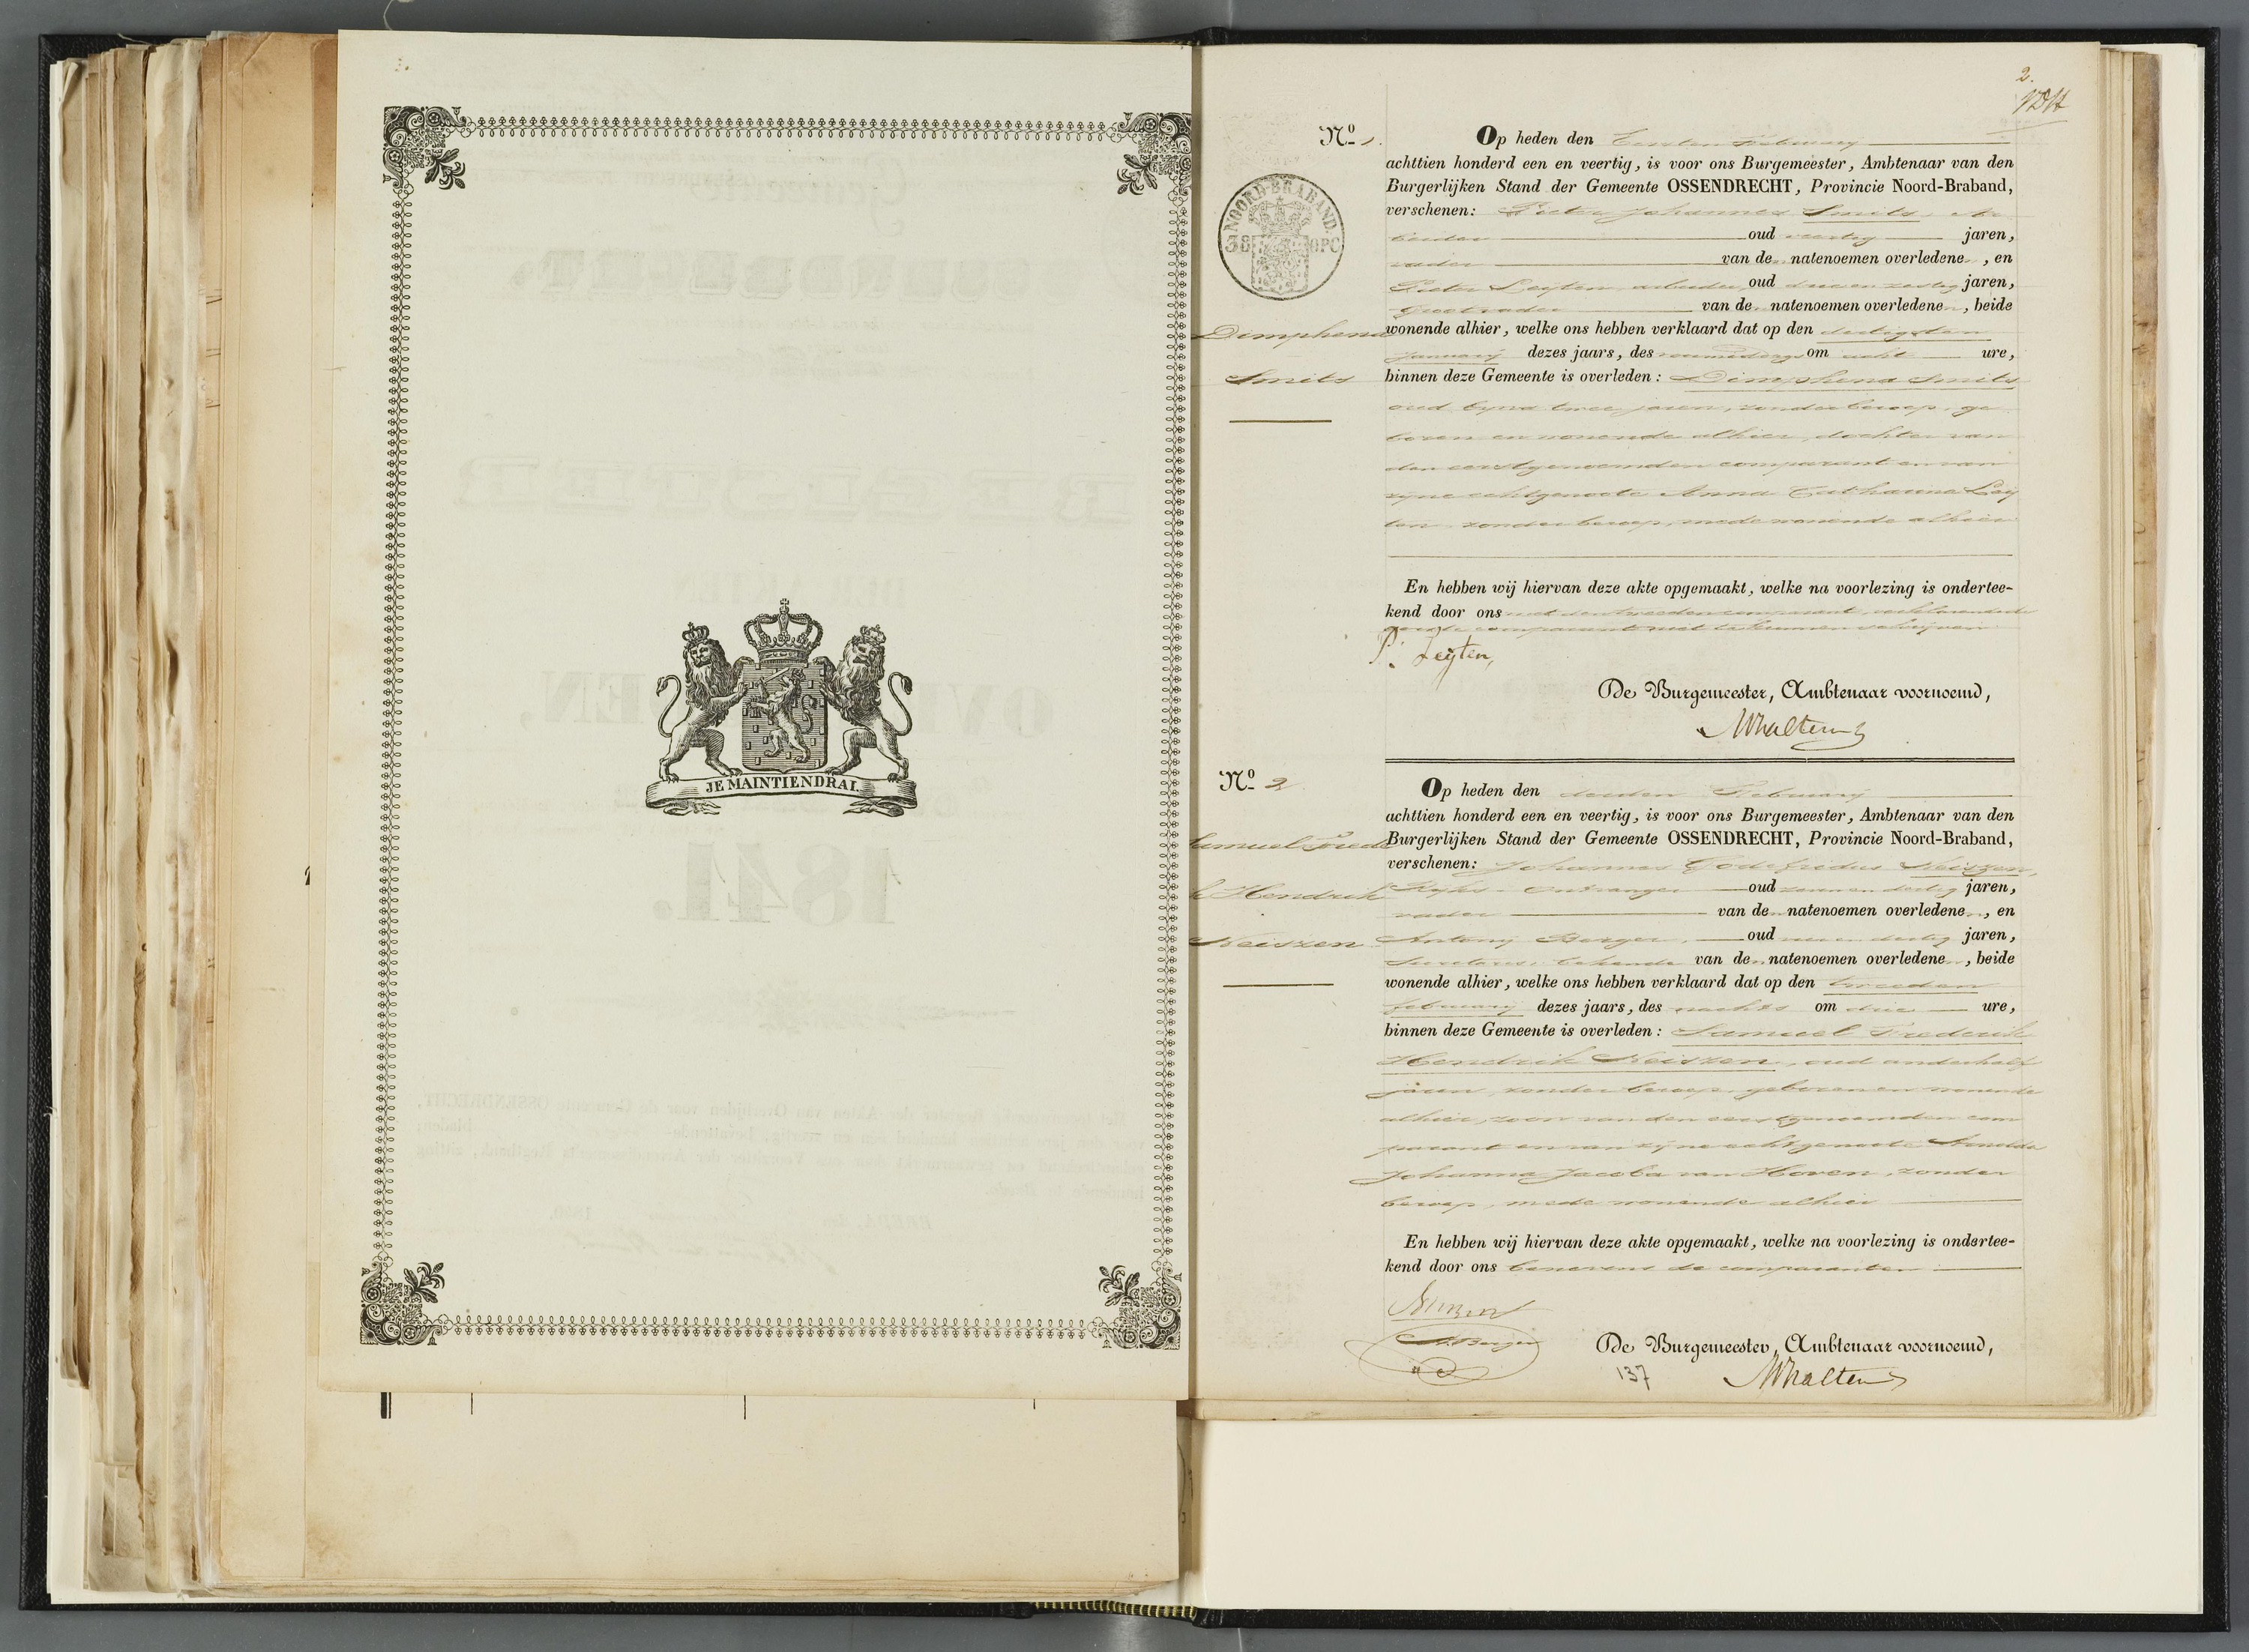 JE MAINTIENDRAI.
2.
No 1.
Op heden den Eersten February
achttien honderd een en veertig, is voor ons Burgemeester, Ambtenaar van den
Burgerlijken Stand der Gemeente OSSENDRECHT, Provincie Noord-Braband,
verschenen: Pieter Johannes Smits, Ar
beider oud veertig jaren,
vader van de natenoemen overledene, en
Pieter Leijten, arbeider, oud drie en zestig jaren,
Grootvader van de natenoemen overledene, beide
wonende alhier, welke ons hebben verklaard dat op den dertigsten
January dezes jaars, des voormiddags om acht ure,
binnen deze Gemeente is overleden: Dimphena Smits
oud byna twee jaren, zonder beroep, ge
boren en wonende alhier, dochter van
den eerstgenoemden comparant en van
zyne echtgenoote Anna Catharina Leij
ten, zonder beroep, mede wonende alhier
NOORD-BRABAND.
38 OPC
Dimphena
Smits
En hebben wij hiervan deze akte opgemaakt, welke na voorlezing is ondertee-
kend door ons met den tweeden comparant, verklarende de
eerste comparant niet te kunnen schrijven
P. Leijten,
De Burgemeester, Ambtenaar voornoemd,
No 2
Op heden den derden February
achttien honderd een en veertig, is voor ons Burgemeester, Ambtenaar van den
Burgerlijken Stand der Gemeente OSSENDRECHT, Provincie Noord-Braband,
verschenen: Johannes Godefridus Neiszen,
Ryks-Ontvanger oud zeven en dertig jaren,
vader van de natenoemen overledene, en
Antony Berger, oud en dertig jaren,
Secretaris, bekende van de natenoemen overledene, beide
wonende alhier, welke ons hebben verklaard dat op den tweeden
february dezes jaars, des nachts om drie ure,
binnen deze Gemeente is overleden: Samuel Frederik
Hendrik Neiszen, oud anderhalf
jaren, zonder beroep, geboren en wonende
alhier, zoon van den eerstgenoemden com
parant en van zyne echtgenoote
Johanna Jacoba van Hoven, zonder
beroep, mede wonende alhier
Samuel Frede
k Hendrik
Neiszen
En hebben wij hiervan deze akte opgemaakt, welke na voorlezing is ondertee-
kend door ons benevens de comparanten
A Berger
De Burgemeester, Ambtenaar voornoemd,
137